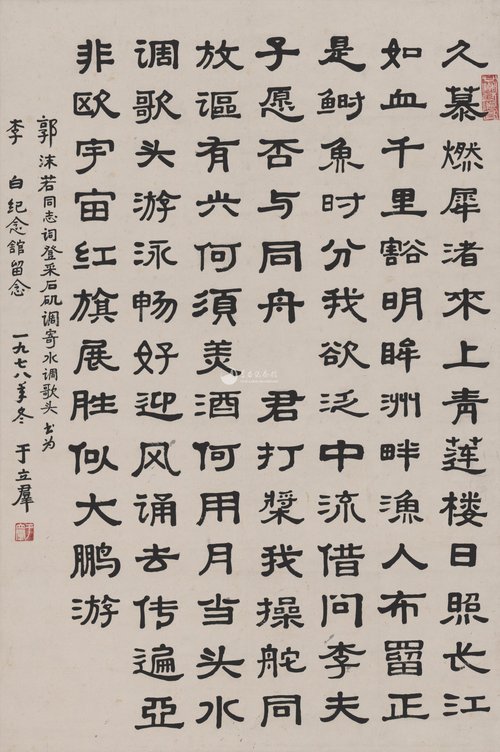 久慕燃犀渚來上青莲楼日照长江
如血千里豁明眸洲畔漁人布罶正
是鲥鱼时分我欲泛中流借问李夫
子愿否与同舟 君打槳我操舵同
放謳有兴何須羡酒何用月当头水
调歌头游泳畅好迎风诵去传遍亞
非欧宇宙红旗展胜似大鹏游
郭沫若同志词登采石矶调寄水调歌头 书为
李白纪念館留念 一九七八年冬 于立羣